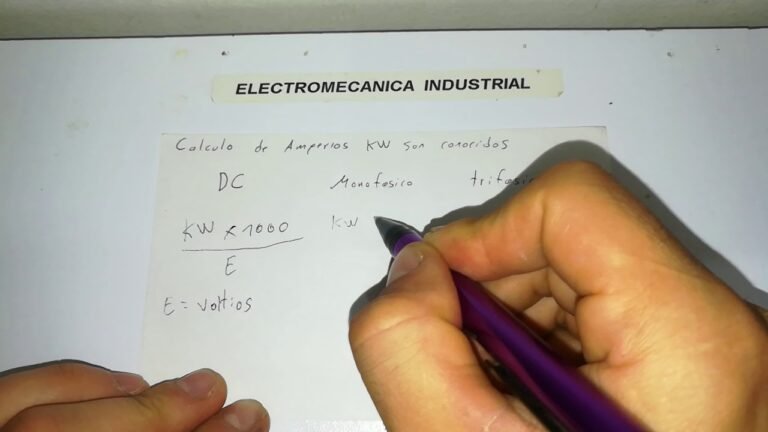 ELECTROMECANICA INDUSTRIAL
Calculo de Amperios KW son conocidos
DC Monofasico trifasic
KW x 1000 KW
E
E = voltios